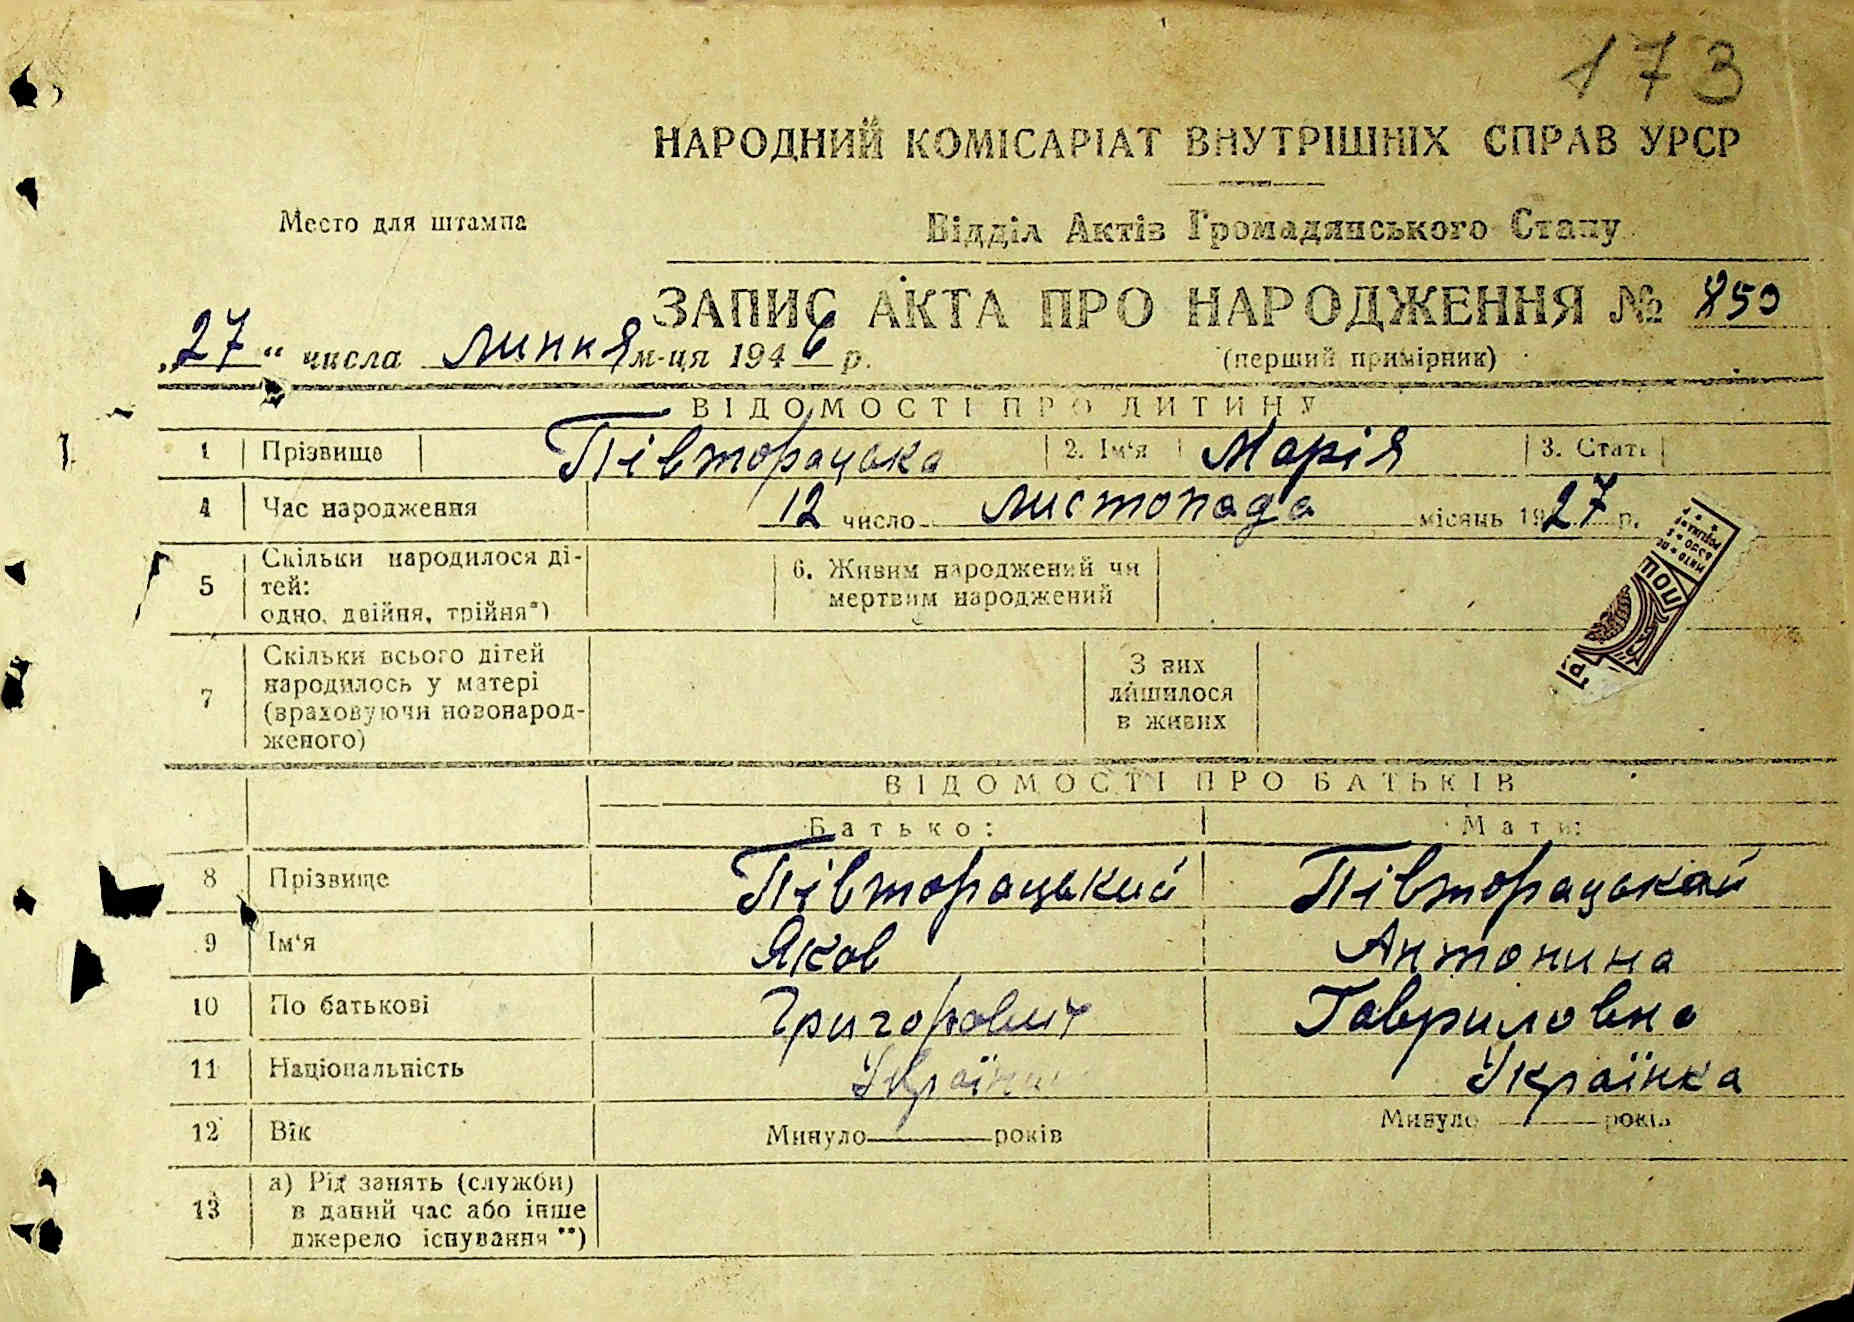 173
НАРОДНИЙ КОМІСАРІАТ ВНУТРІШНІХ СПРАВ УРСР
Место для штампа
Відділ Актів Громадянського Стану
ЗАПИС АКТА ПРО НАРОДЖЕННЯ № 850
„27“ числа липня м-ця 1946 р.
(перший примірник)
ВІДОМОСТІ ПРО ДИТИНУ
1 Прізвище Півторацька 2. Ім'я Марія 3. Стать
4 Час народження 12 число листопада місяць 1927 р.
5 Скільки народилося ді-
тей:
одно, двійня, трійня*)
6. Живим народжений чи
мертвим народжений
7 Скільки всього дітей
народилось у матері
(враховуючи новонарод-
женого)
З них
лишилося
в живих
ВІДОМОСТІ ПРО БАТЬКІВ
Батько: Мати:
8 Прізвище Півторацький Півторацькай
9 Ім'я Яков Антонина
10 По батькові Григорович Гавриловна
11 Національність Українка
12 Вік Минуло років Минуло років
13 а) Рід занять (служби)
в даний час або інше
джерело існування **)